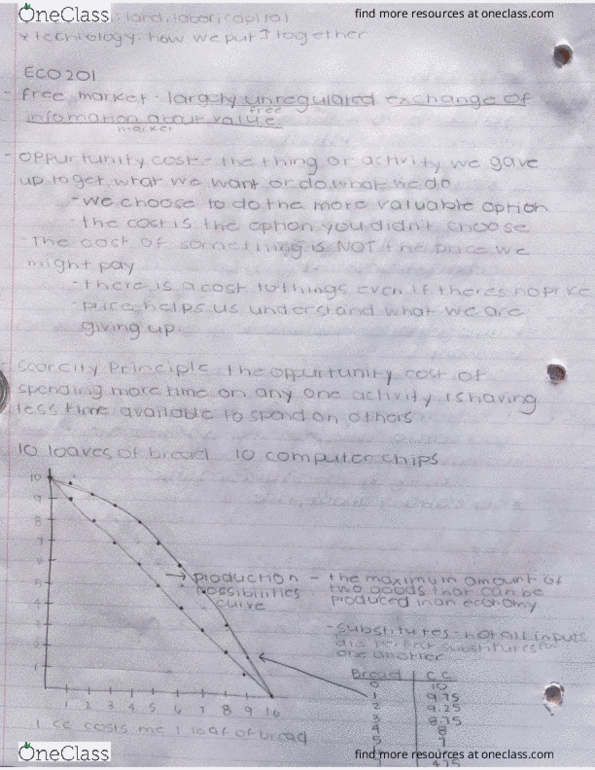 OneClass
find more resources at oneclass.com
: land, labor, capital
* technology: how we put ↑ together
ECO201
- free market - largely unregulared exchange of
free
infomation about value
market
- oppurtunity cost - the thing or activity we gave
up to get what we want or do what we do
- we choose to do the more valuable option
- the cost is the option you didn't choose
- The cost of something is NOT the price we
might pay
- there is a cost to things even if theres no price
- price helps us understand what we are
giving up.
scarcity Principle the oppurtunity cost of
spending more time on any one activity is having
less time available to spend on others
10 loaves of bread 10 computer chips
10
9
8
7
6
5
4
3
2
1
→ production
possibilities
curve
- the maximum amount of
two goods that can be
produced in an economy
- substitutes - not all inputs
are perfect substitutes for
one another
Bread C.C.
0 10
1 9.75
2 9.25
3 8.75
4 8
5 7
4.75
1 2 3 4 5 6 7 8 9 10
1 cc costs me 1 loaf of bread
OneClass
find more resources at oneclass.com